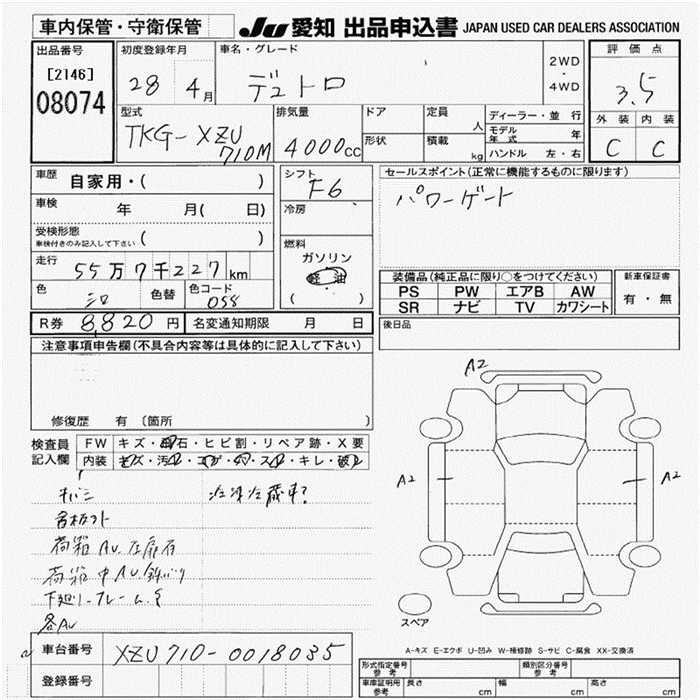 車内保管・守衛保管
JU 愛知 出品申込書 JAPAN USED CAR DEALERS ASSOCIATION
出品番号
[2146]
08074
初度登録年月
28 4月
車名・グレード
デュトロ
2WD
・
4WD
評価点
3.5
外装 内装
C C
型式
TKG-XZU
710M
排気量
4000cc
ドア
形状
定員
人
積載
kg
ディーラー・並行
モデル年式 年
ハンドル 左・右
車歴 自家用・( )
車検 年 月( 日)
受検形態
車検付きのみ記入して下さい ( )
走行 55万7千227km
色 シロ 色替 色コード 058
シフト
F6
冷房
燃料
ガソリン
軽油
( )
セールスポイント(正常に機能するものに限ります)
パワーゲート
装備品(純正品に限り○をつけてください)
PS PW エアB AW
SR ナビ TV カワシート
新車保証書
有・無
後日品
R券 8,820円 名変通知期限 月 日
注意事項申告欄(不具合内容等は具体的に記入して下さい)
修復歴 有 〔箇所 〕
検査員記入欄
FW キズ・飛石・ヒビ割・リペア跡・X要
内装 キズ・汚・コゲ・穴・スレ・キレ・破レ
キバミ
荷箱AU.
荷箱中AU.
下廻り.フレーム.
各AU
A2
A2
A2
スペア
A-キズ E-エクボ U-凹み W-補修跡 S-サビ C-腐食 XX-交換済
車台番号 XZU710-0018035
登録番号
形式指定番号
参考
類別区分番号
参考
車庫証明用
参考
長さ cm
幅 cm
高さ cm